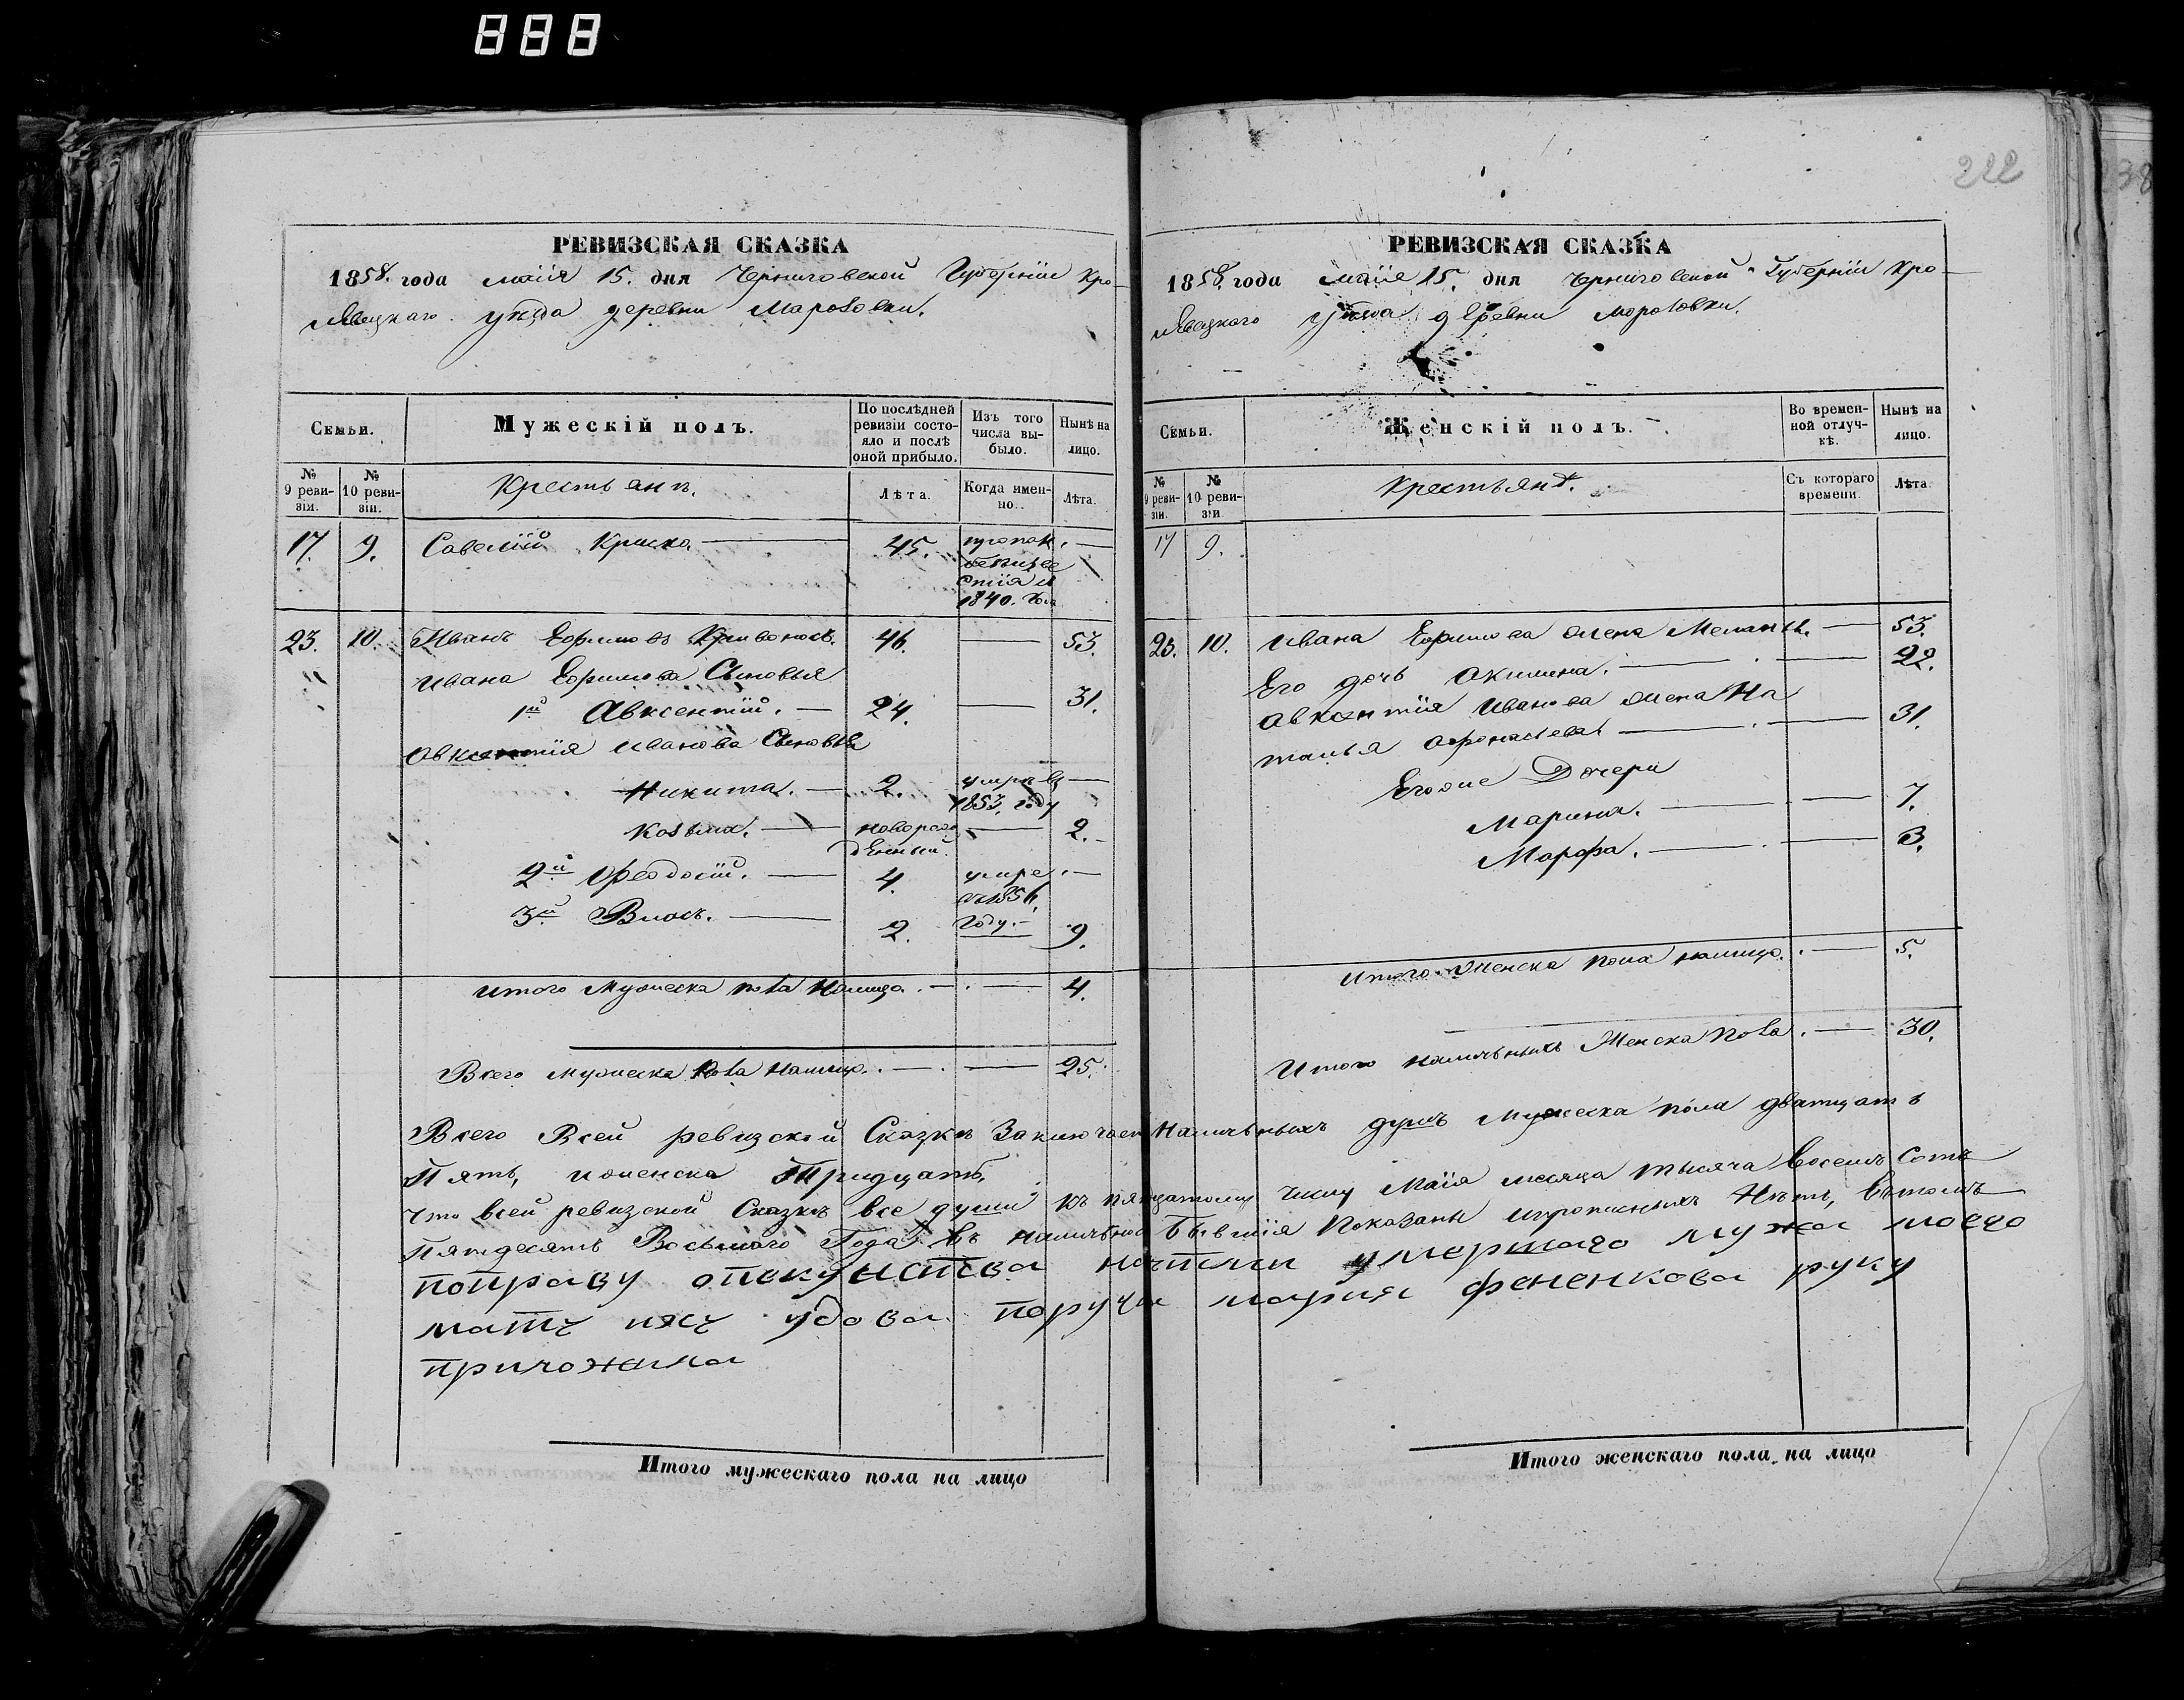 888
РЕВИЗСКАЯ СКАЗКА
1858. года маія 15. дня Черниговской Губерніи Кро-
левецкаго уѣзда деревни Маровки.
Семьи.
Мужескій полъ.
По послѣдней ревизіи состояло и послѣ оной прибыло.
Изъ того числа выбыло.
Нынѣ на лицо.
№ 9 ревизіи.
№ 10 ревизіи.
Крестьянъ.
Лѣта.
Когда именно.
Лѣта.
17. 9. Савелій 45.
1840. года
23. 10. Иванъ Ефимовъ Кривоносъ. 46. 53.
Ивана Ефимова Сыновья
1й Авксентій. 24. 31.
Авксентія Иванова Сыновья
Никита. 2. умре въ
1853. году
Козьма. новорож 2.
денный.
2й Феодосій. 4. умре
въ 1856.
3й Власъ. 2. году. 9.
Итого Мужеска пола Налицо. 4.
Всего мужеска пола Налицо. 25.
222
РЕВИЗСКАЯ СКАЗКА
1858. года маія 15. дня Черниговской Губерніи Кро-
левецкаго уѣзда деревни
Семьи.
Женскій полъ.
Во временной отлучкѣ.
Нынѣ на лицо.
№ 9 ревизіи.
№ 10 ревизіи.
Крестьянъ.
Съ котораго времени.
Лѣта.
17 9.
23. 10. Ивана Ефимова жена 53.
Его дочь Акилина. 22.
Авксентія Иванова жена На
талья Афонасьева 31.
Егоже Дочери
Марина. 7.
Марфа. 3.
Итого женска пола налицо. 5.
Итого наличныхъ Женска пола. 30.
Всего Всей ревизской Сказкѣ Заключает Наличныхъ душъ Мужеска пола дватцать
Пять, иженска Тридцать,
Что всей ревизской Сказкѣ все души къ пятнадцатому числу Маія месяца тысяча Восемъ Сотъ
Пятдесятъ Восьмого Года въ наличной бывшія Показаны ипрописныхъ Нѣтъ, вътомъ
поправу опекунства умершаго мужа моего
удова мария фененкова руку
приложила
Итого мужескаго пола на лицо
Итого женскаго пола на лицо